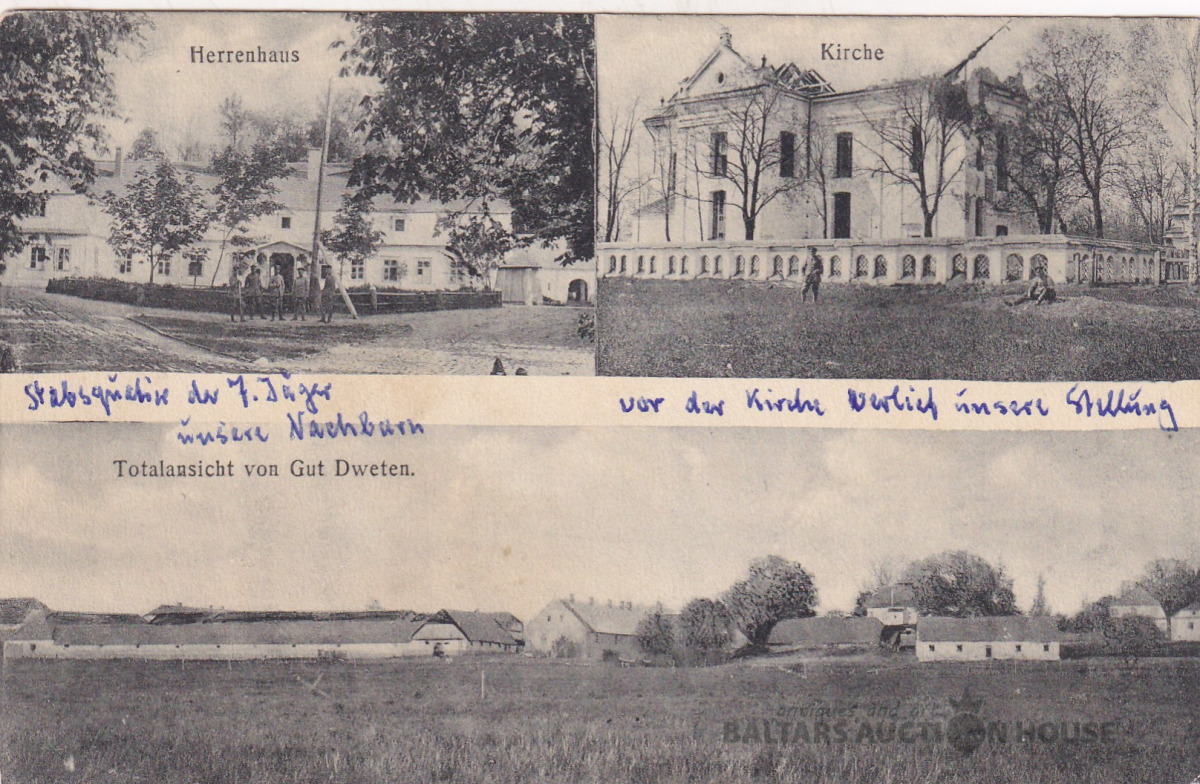 Herrenhaus
Kirche
Stabsquatier der 7. Jäger
unsere Nachbarn
vor der Kirche verlief unsere Stellung
Totalansicht von Gut Dweten.
antiques and art
BALTARS AUCTION HOUSE